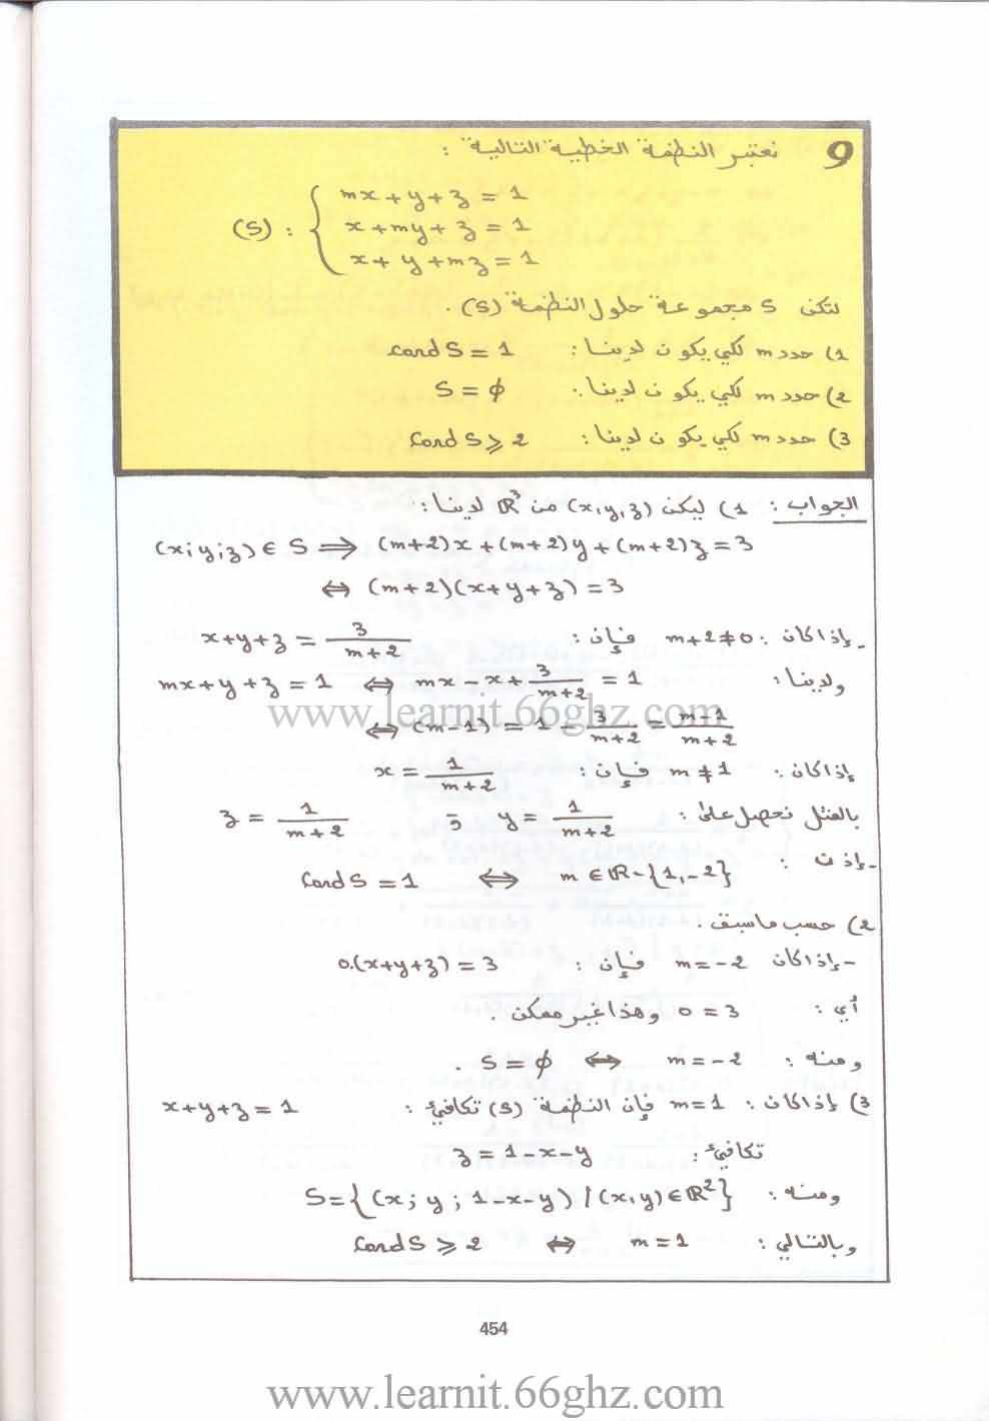 9 نعتبر النظمة الخطية التالية :
(S) : { mx + y + z = 1
x + my + z = 1
x + y + mz = 1
لتكن S مجموعة حلول النظمة (S) .
1) حدد m لكي يكون لدينا : card S = 1
2) حدد m لكي يكون لدينا : S = ϕ
3) حدد m لكي يكون لدينا : Card S ⩾ 2
الجواب : 1) ليكن (x,y,z) من ℝ³ لدينا :
(x;y;z) ∈ S ⟹ (m+2)x + (m+2)y + (m+2)z = 3
⇔ (m+2)(x+y+z) = 3
- إذا كان : m+2≠0 فإن : x+y+z = 3/(m+2)
ولدينا : mx + y + z = 1 ⇔ mx - x + 3/(m+2) = 1
www.learnit.66ghz.com
⇔ (m-1) = 1 - 3/(m+2) = (m-1)/(m+2)
إذا كان : m ≠ 1 فإن : x = 1/(m+2)
بالمثل نحصل على : y = 1/(m+2) و z = 1/(m+2)
- إذن : m ∈ ℝ-{1,-2} ⇔ Card S = 1
2) حسب ما سبق .
- إذا كان m = -2 فإن : 0.(x+y+z) = 3
أي : 0 = 3 وهذا غير ممكن .
ومنه : m = -2 ⇔ S = ϕ .
3) إذا كان : m=1 فإن النظمة (S) تكافئ : x+y+z = 1
تكافئ : z = 1-x-y
ومنه : S={(x; y; 1-x-y) / (x,y)∈ℝ²}
وبالتالي : m = 1 ⇔ Card S ⩾ 2
454
www.learnit.66ghz.com